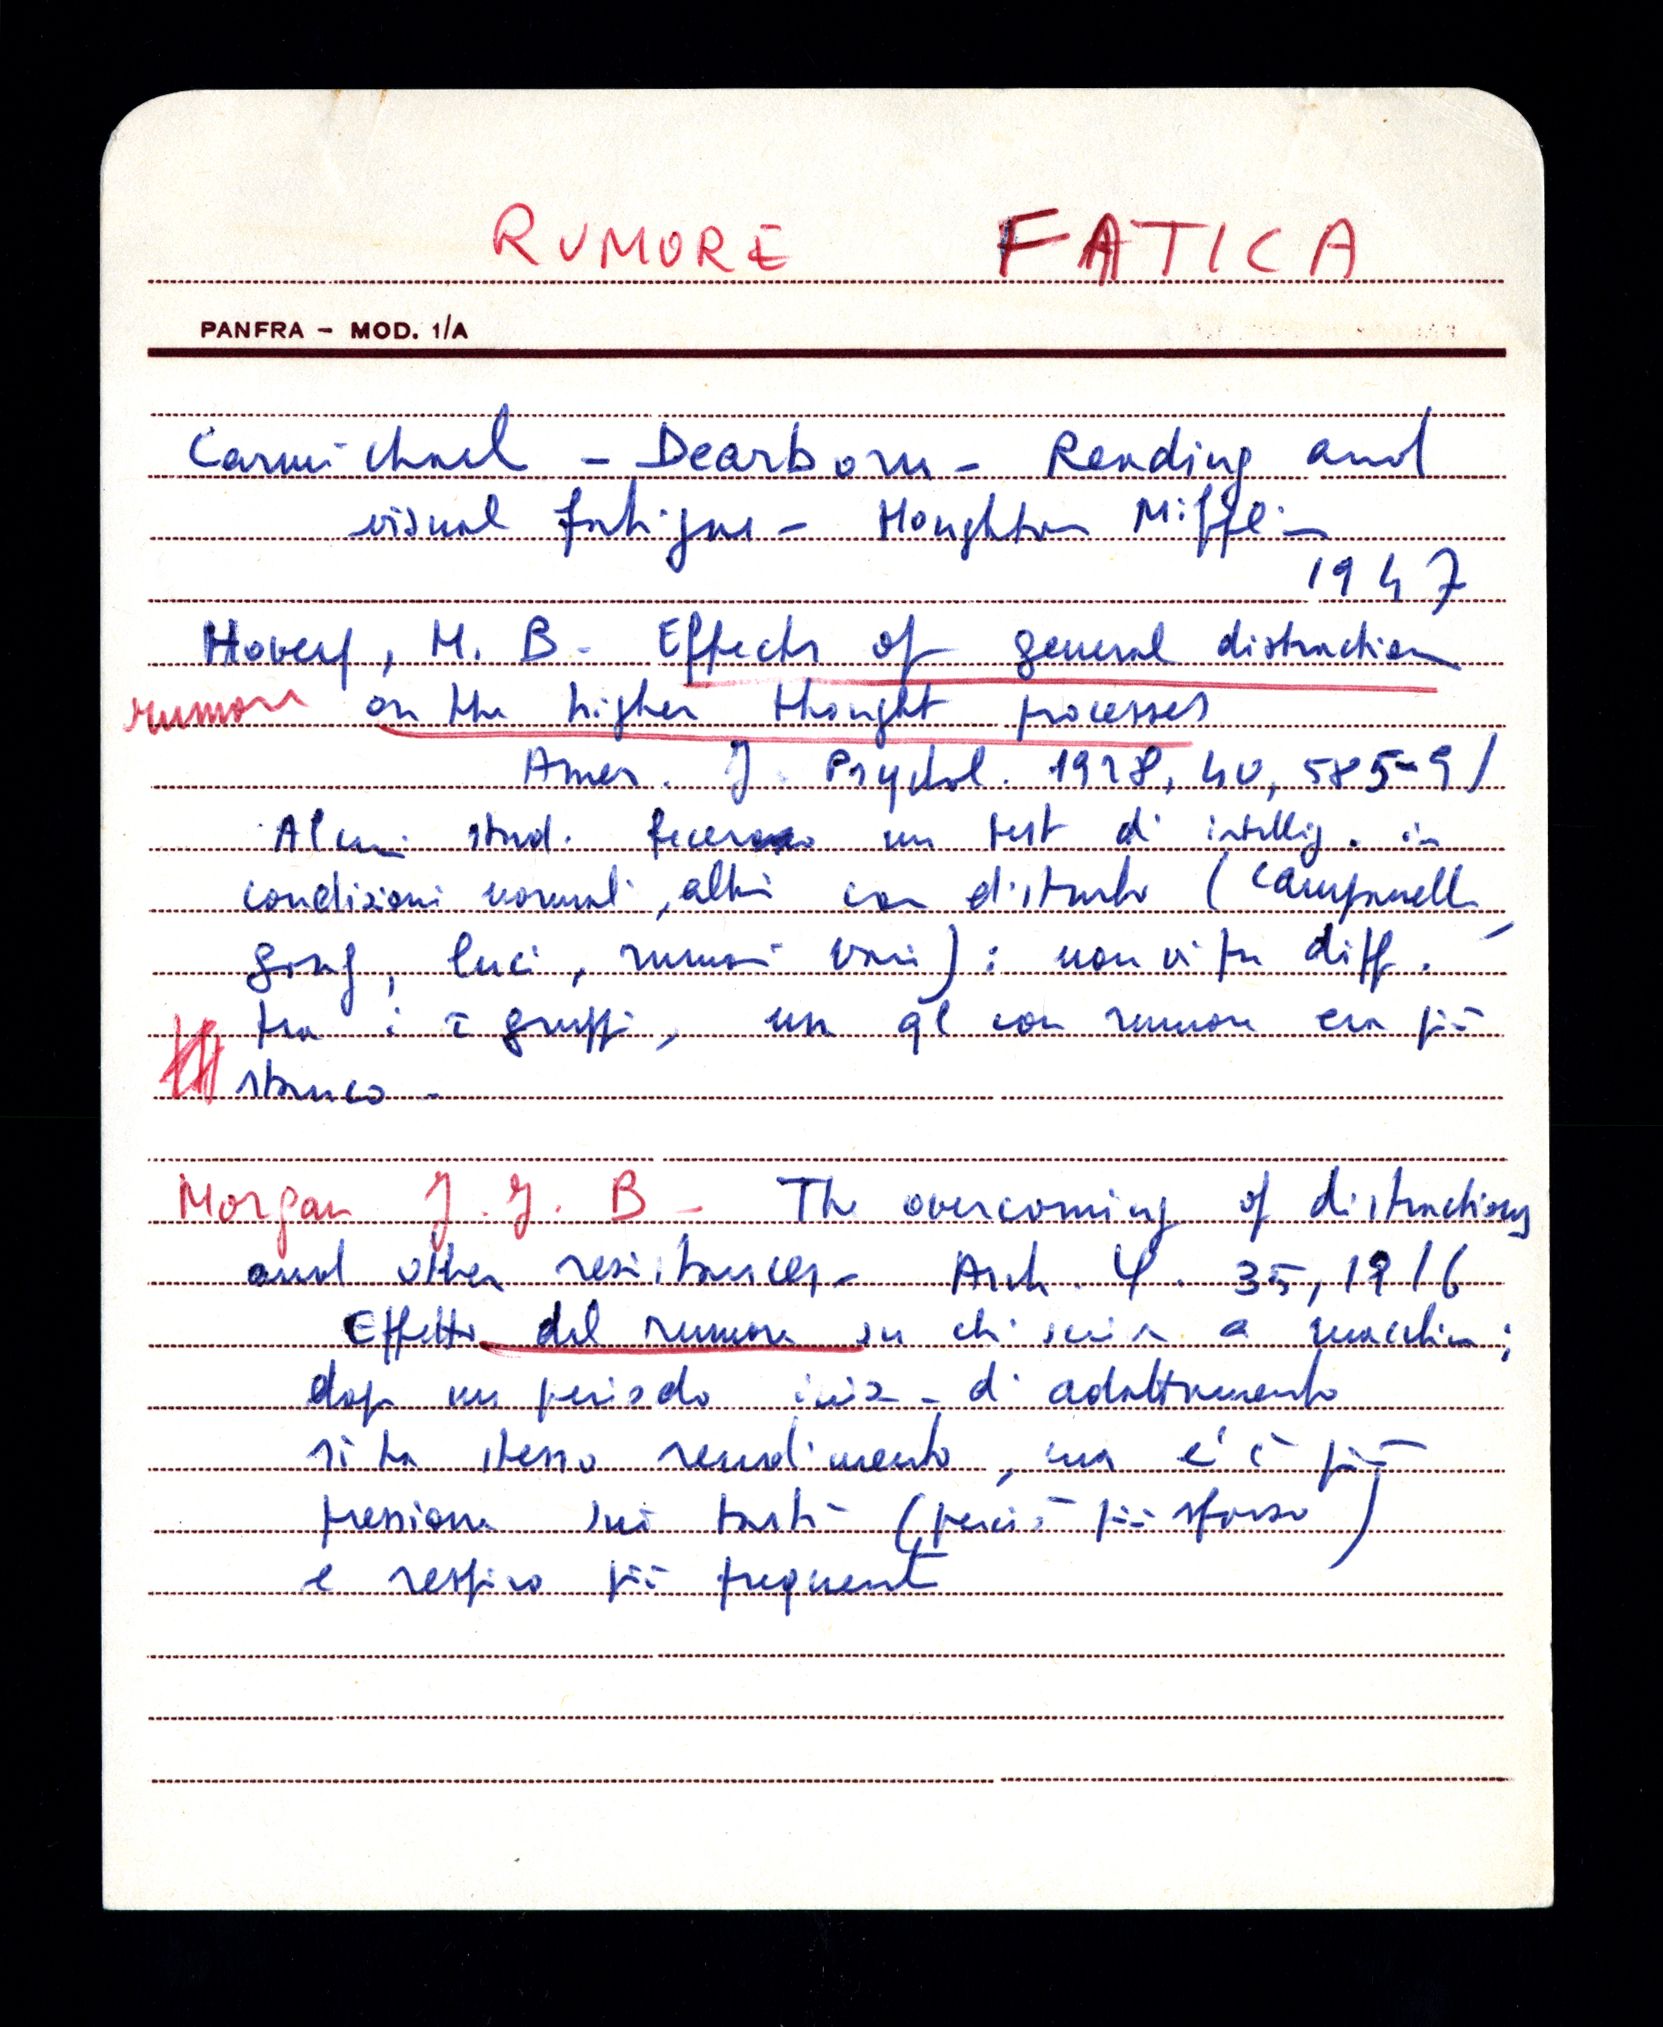 RUMORE FATICA
PANFRA - MOD. 1/A
Carmichael - Dearborn - Reading and
visual fatigue - Houghton Mifflin
1947
Hovey, H. B. - Effects of general distraction
rumore on the higher thought processes
Amer. J. Psychol. 1928, 40, 585-91
Alcuni stud. fecero un test di intellig. in
condizioni normali, altri con disturbo (campanelli,
gong, luci, rumori vari): non vi fu diff.
tra i 2 gruppi, ma ql con rumore era più
stanco -
Morgan J. J. B - The overcoming of distractions
and other resistances - Arch. Ψ. 35, 1916
Effetto del rumore su chi scrive a macchina;
dopo un periodo iniz - di adattamento
si ha stesso rendimento, ma c'è più
pressione sui tasti (perciò più sforzo)
e respiro più frequente